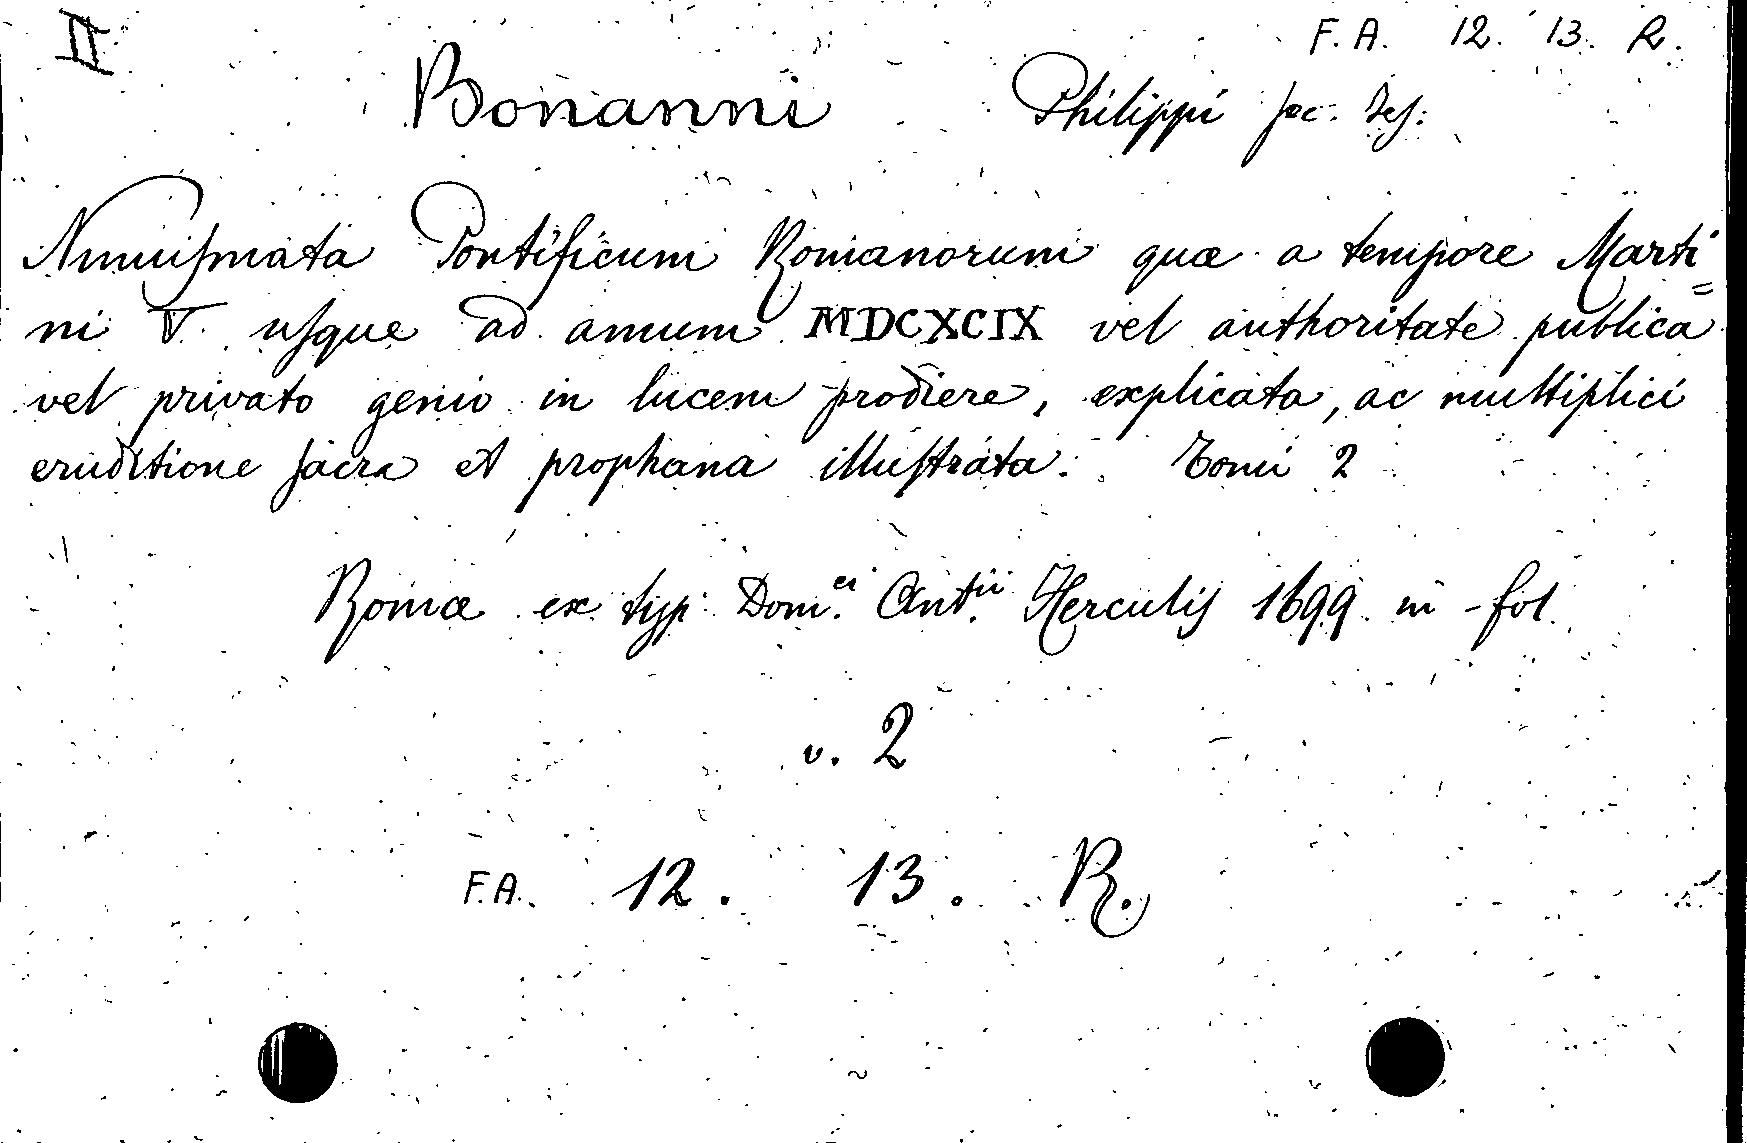 II
F. A. 12. 13. R.
Bonanni Philippi soc. Jes:
Numismata Pontificum Romanorum quæ a tempore Marti=
ni V. usque ad annum MDCXCIX vel authoritate publica
vel privato genio in lucem prodiere, explicata, ac multiplici
eruditione sacra et prophana illustrata. Tomi 2
Romæ ex typ: Dom.ci Ant.ii Herculis 1699 in-fol.
v. 2
F.A. 12. 13. R.